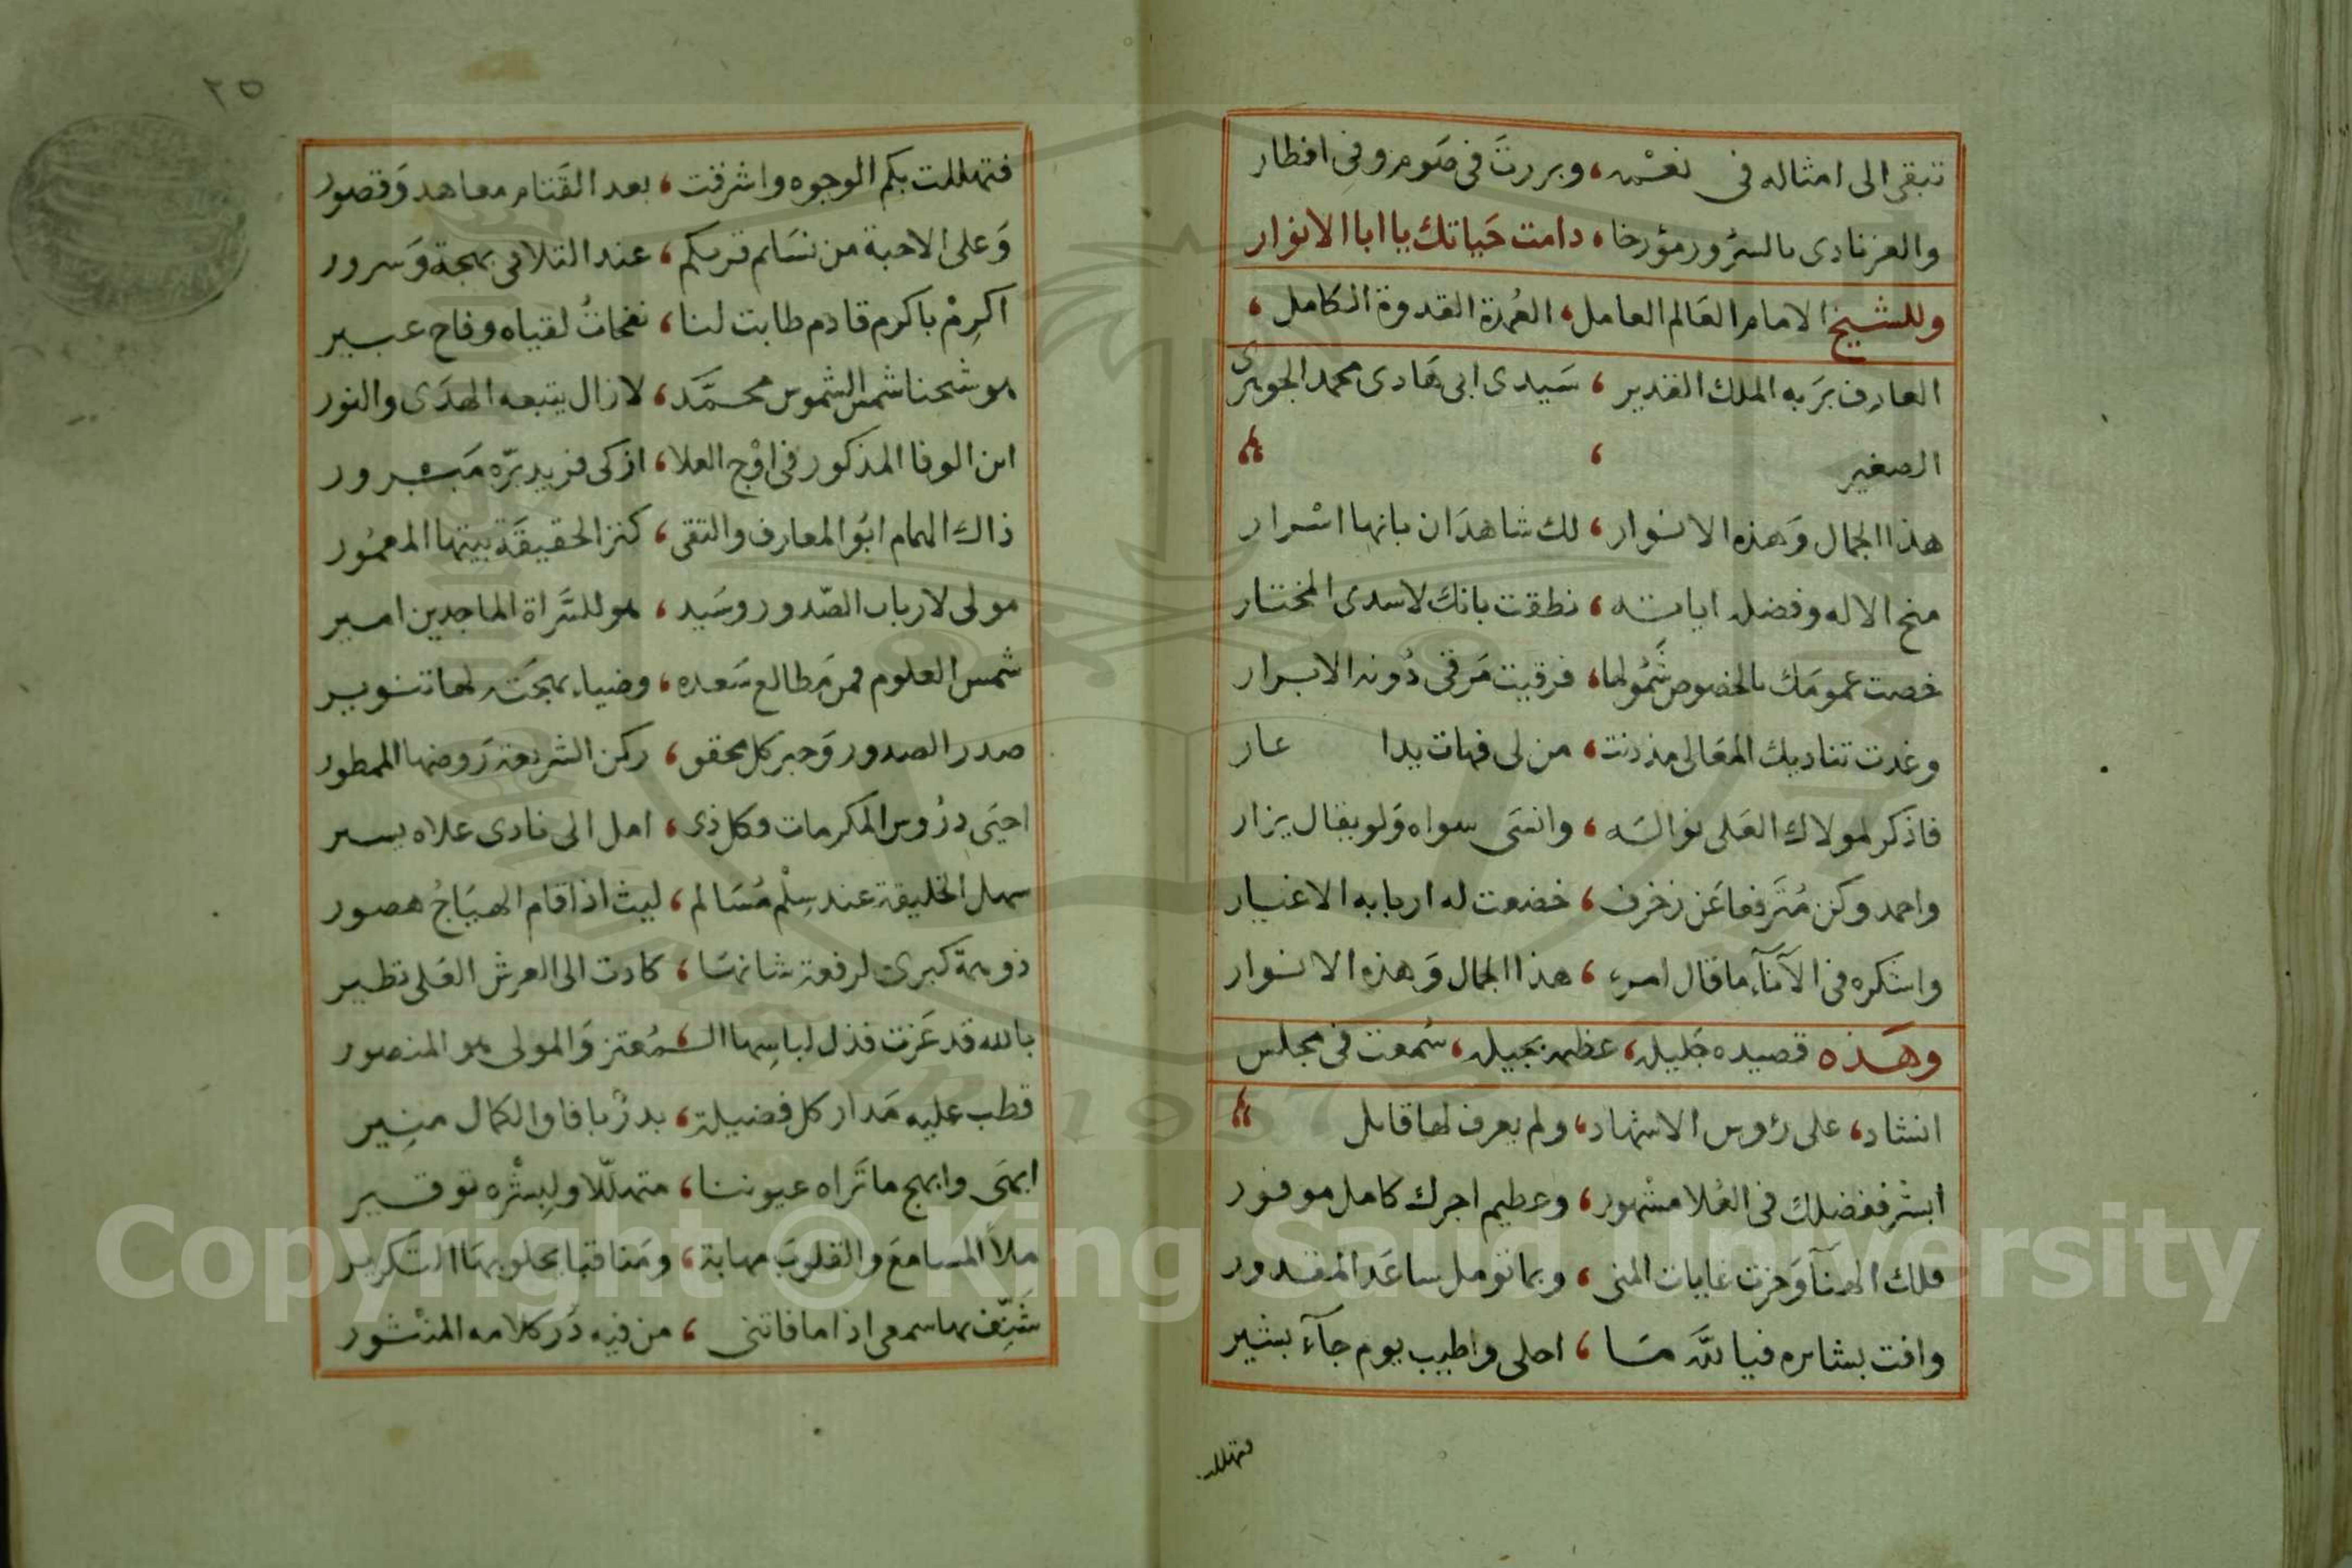 تبقى الى امثاله فى نعمه، وبررت فى صَوم وفى افطار
والعز نادى بالسرُور مؤرخا، دامت حَياتك يا ابا الانوار
وللشيخ الامام العَالم العامل، العُمدة القدوة الكامل،
العارف برَبه الملك القدير، سَيدى ابى هَادى محمد الجوهرى
الصغير
هذا الجمال وَهذه الانوار، لك شاهدَان بانها اسْرار
منح الاله وفضله اياته، نطقت بانك لاسدى المختار
خصت عمومَك بالخصوص شَمُولها، فرقيت مَرقى دُونه الابرار
وغدت تناديك المعَالى مذ دنت، من لى فهات يدا عار
فاذكر لمولاك العَلى نواله، وانسَى سواه وَلو يقال يزار
واحمد وكن مُتَرفعا عَن زخرف، خضعت له اربابه الاغيار
واشكره فى الآناَء ما قال امرء، هذا الجمال وَهذه الانوار
وهَذه قصيده جَليله، عظيمه بجيله، سُمعت فى مجلس
انشاد، على رؤس الاشهاد، ولم يعرف لها قايل
ابشر ففضلك فى العُلا مشْهور، وعظيم اجرك كامل موفور
فلك الهنَآ وَحزت غايات المنى، وبما تومل ساعَد المقدور
وافت بشايره فيا للَّه مَا، احلى واطيب يوم جآء بشير
فتهللت
٢٥
فتهللت بكم الوجوه واشرقت، بعد القَتام معاهد وَقصور
وَعلى الاحبة من نسَايم قربكم، عند التلاقى بهجة وَسرور
اكرِمْ باكرم قادم طابت لنا، نفحاتُ لقياه وفاح عبير
هو شيخنا شمس الشموس محمَّد، لازال يتبعه الهدَى والنور
ابن الوفا المذكور فى اوْج العلا، ازكى فريد برّه مَبرور
ذاك الهمام ابُو المعارف والتقى، كنز الحقيقَة بيتها المعمُور
مولى لارباب الصّدور وسَيد، هو للسَّراة الماجدين امير
شمس العلوم فمن مَطالع سَعده، وضياء بهجَته لها تنوير
صدر الصدور وَحبر كل محقق، ركن الشريعة رَوضها الممطور
احيَى درُوس المكرمات وكل ذى، امل الى نادى علاه يسير
سهل الخليقة عند سِلْم مُسَالم، ليث اذا قام الهيَاجُ هصور
ذو همة كبرى لرفعة شانهَا، كادت الى العرش العَلى تطير
بالله قد عَزت فذل لباسِها الـ، ـمُعتز وَالمولى هو المنصور
قطب عليه مَدار كل فضيلة، بدرٌ بافاق الكمال منِير
ابهَى وابهج ما تَراه عيوننا، متهلّلا ولِبِشْره توقير
ملأ المسامعَ والقلوبَ مهابة، ومَناقبا يحلو بهَا التكرير
شَنِّف بها سمعى اذا ما فاتنى، من فيه دُر كلامه المنثور
Copyright © King Saud University
1957